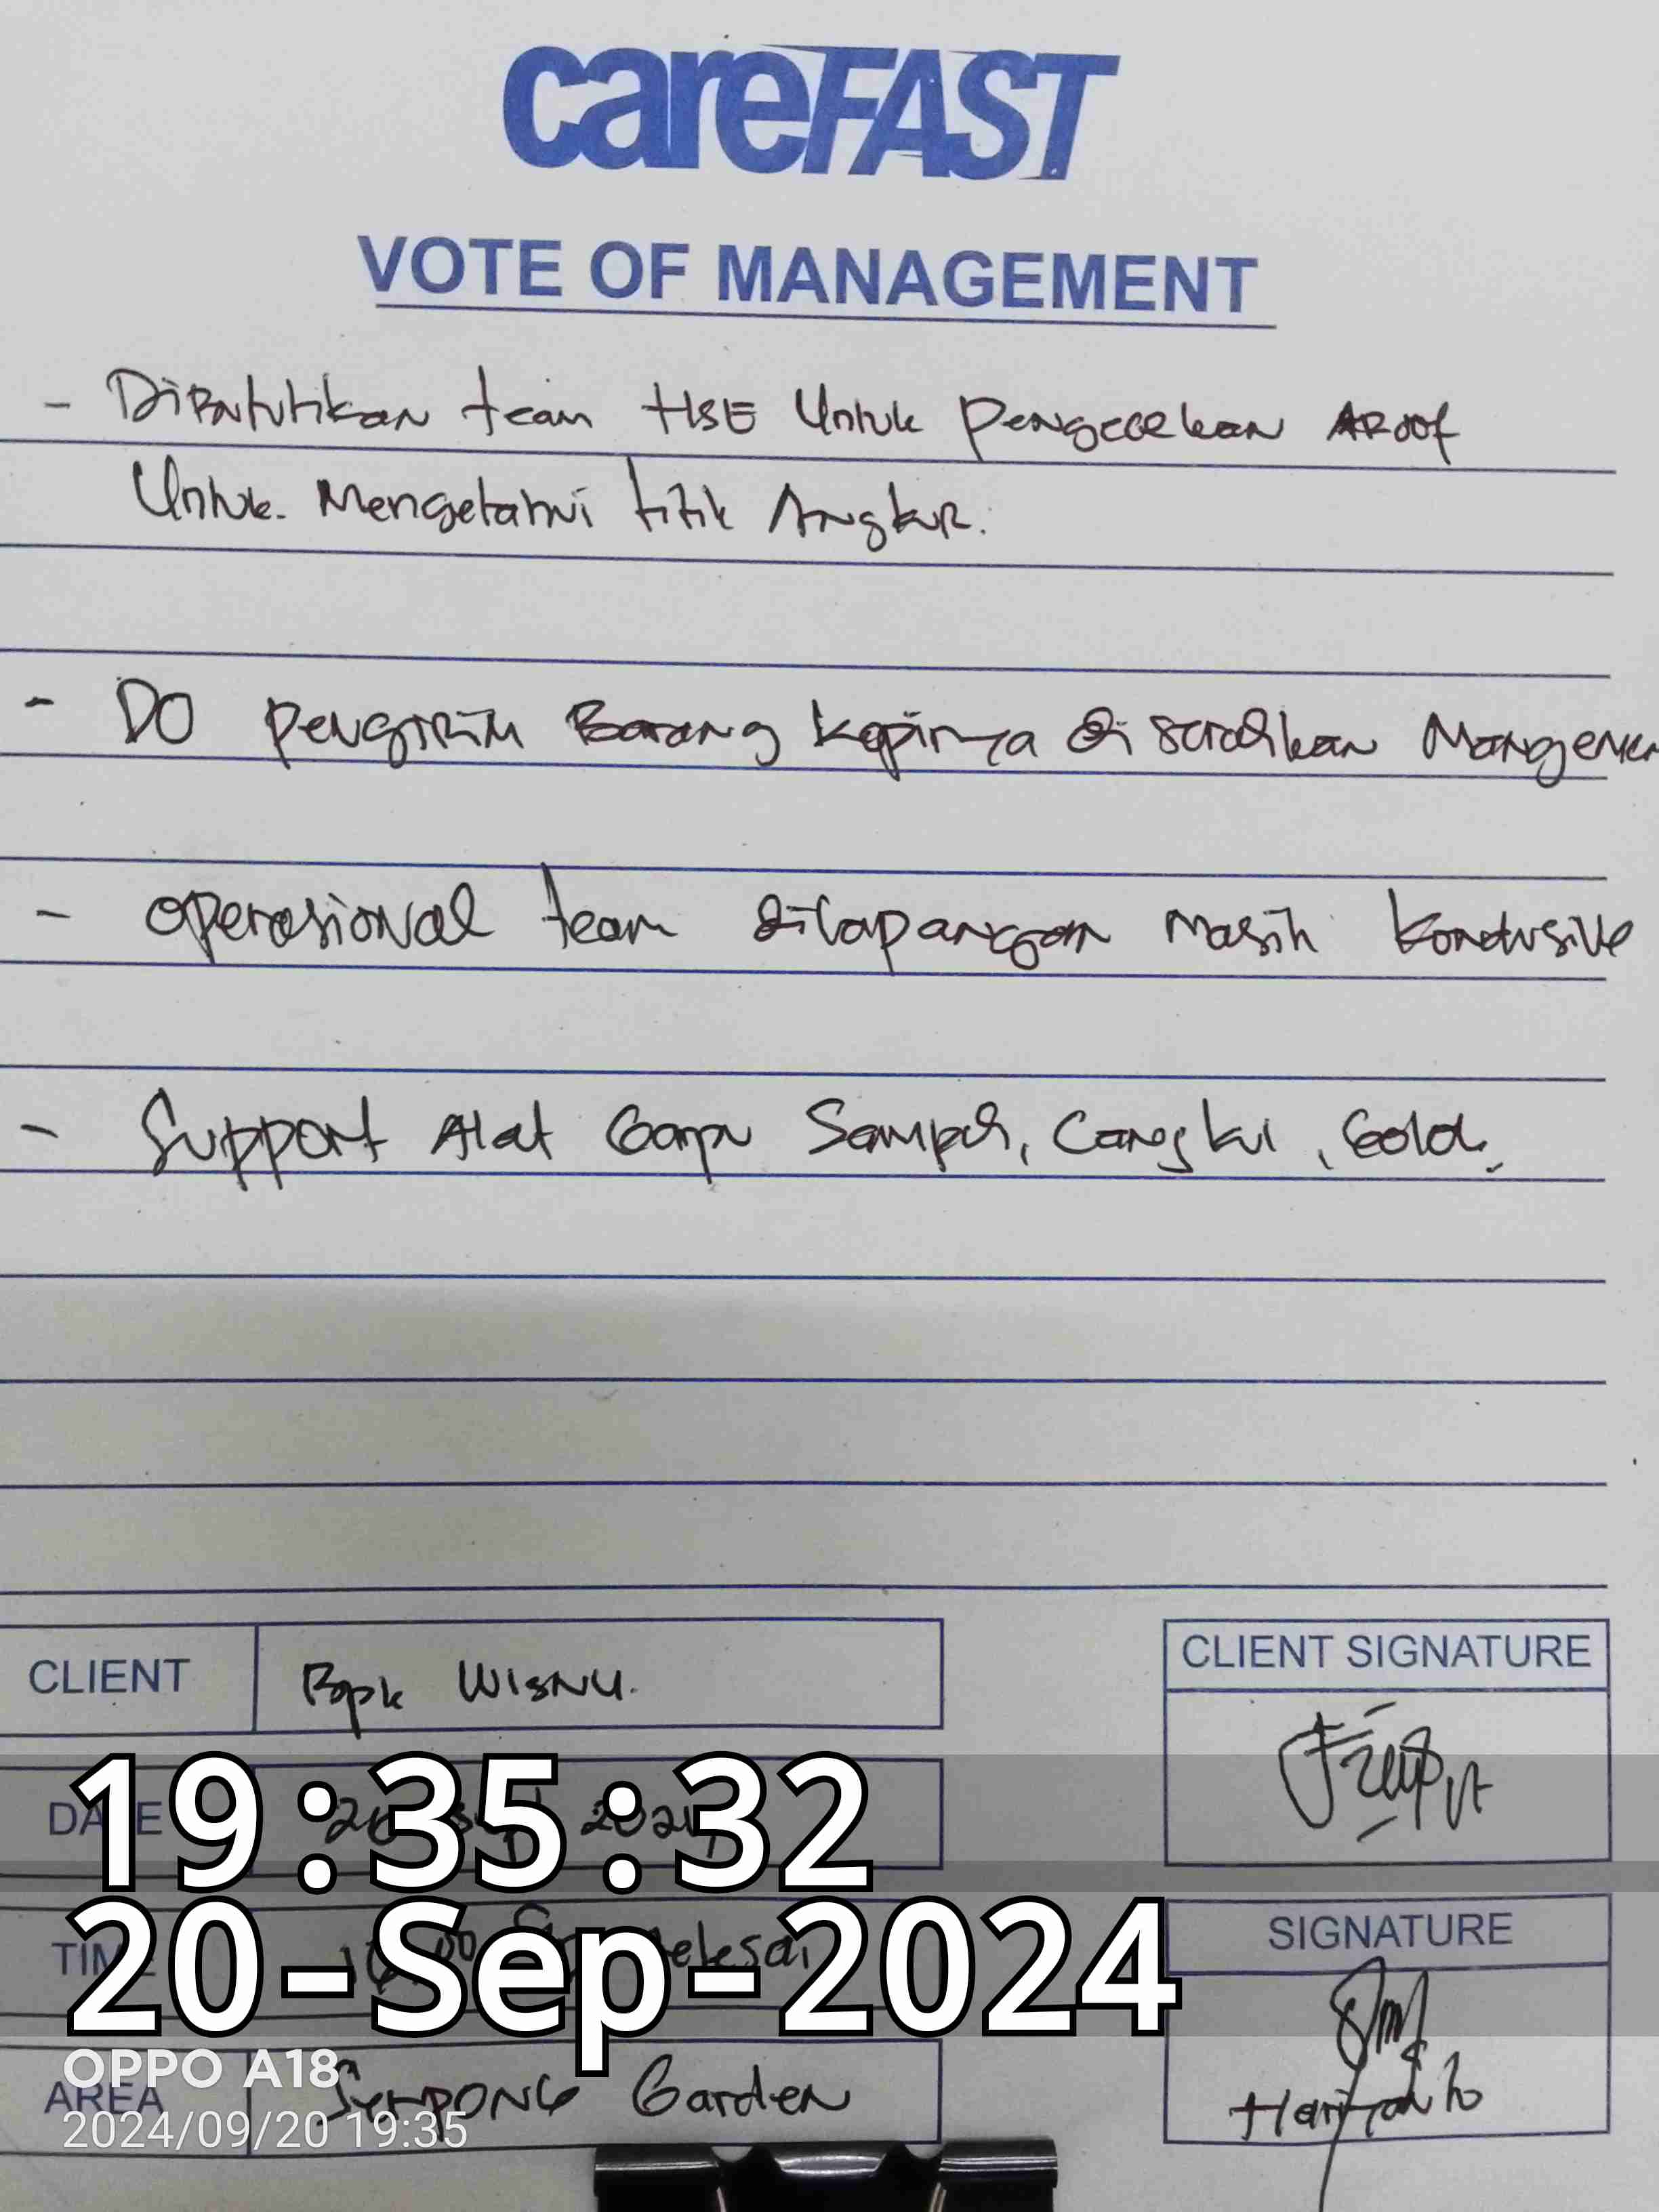 careFAST
VOTE OF MANAGEMENT
- Dibutuhkan team HSE Untuk Pengecekan ARoof
Untuk Mengetahui titik Angkur.
- DO Pengirim Barang kopinya di serahkan
- operasional team dilapangan masih kondusive
- Support Alat Garpu Sampah, Cangkul,
CLIENT Bpk Wisnu.
CLIENT SIGNATURE
DATE 20 Sept 2024
19:35:32
TIME selesai
20-Sep-2024
SIGNATURE
OPPO A18
AREA Serpong Garden
2024/09/20 19:35
Hariyanto